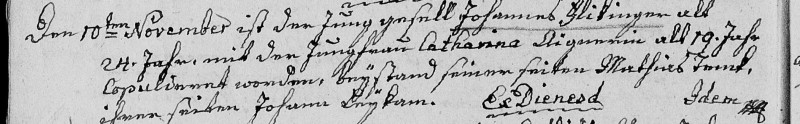 Den 10ten November ist der Jung gesell Johannes Flitinger alt
24. Jahr, mit der Jungfrau Catharina Aignerin alt 19. Jahr
Copulderet worden, beystand seiner seiten Mathias
ihrer seiten Johann Beykam. Ex Dienesd Idem